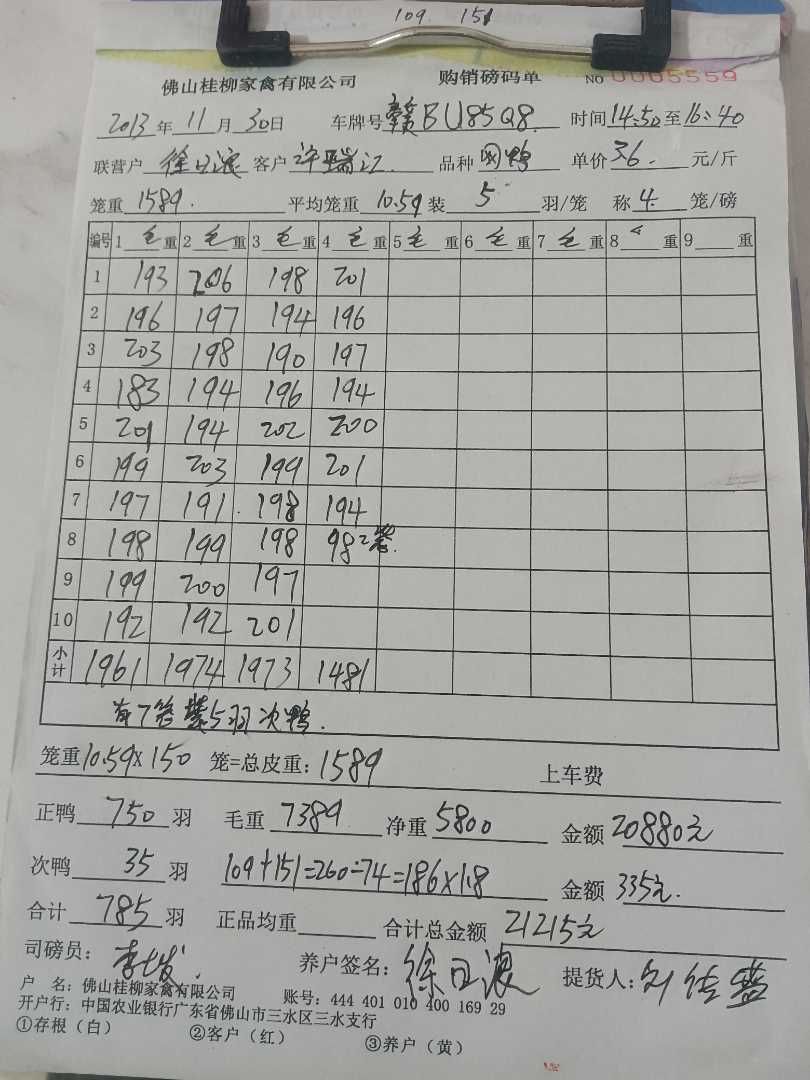 109. 151
佛山桂柳家禽有限公司 购销磅码单 NO 0005559
2013年11月30日 车牌号 赣BU85Q8 时间14:50至16:40
联营户 徐日浪 客户 许瑞江 品种 网鸭 单价 36. 元/斤
笼重 1589. 平均笼重 10.59 装 5 羽/笼 称 4 笼/磅
编号 1 毛 重 2 毛 重 3 毛 重 4 毛 重 5 毛 重 6 毛 重 7 毛 重 8 重 9 重
1 193 206 198 201
2 196 197 194 196
3 203 198 190 197
4 183 194 196 194
5 201 194 202 200
6 199 203 199 201
7 197 191. 198 194
8 198 199 198 98 2笼.
9 199 200 197
10 192 192 201
小计 1961 1974 1973 1481
有7笼装5羽次鸭.
笼重10.59×150 笼=总皮重:1589 上车费
正鸭 750 羽 毛重 7389 净重 5800 金额 20880元
次鸭 35 羽 109+151=260-74=186×1.8 金额 335元.
合计 785 羽 正品均重 合计总金额 21215元
司磅员: 养户签名: 徐日浪 提货人:
户 名: 佛山桂柳家禽有限公司 账号: 444 401 010 400 169 29
开户行: 中国农业银行广东省佛山市三水区三水支行
①存根(白) ②客户(红) ③养户(黄)